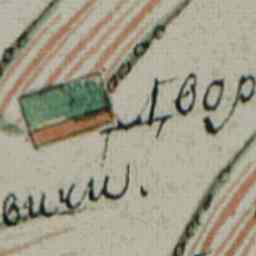 Двор
вичи.